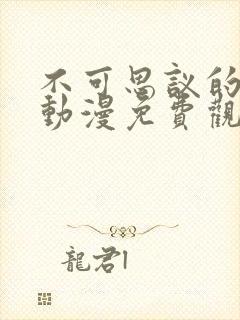 不可思議的
動漫免費觀
龍君1